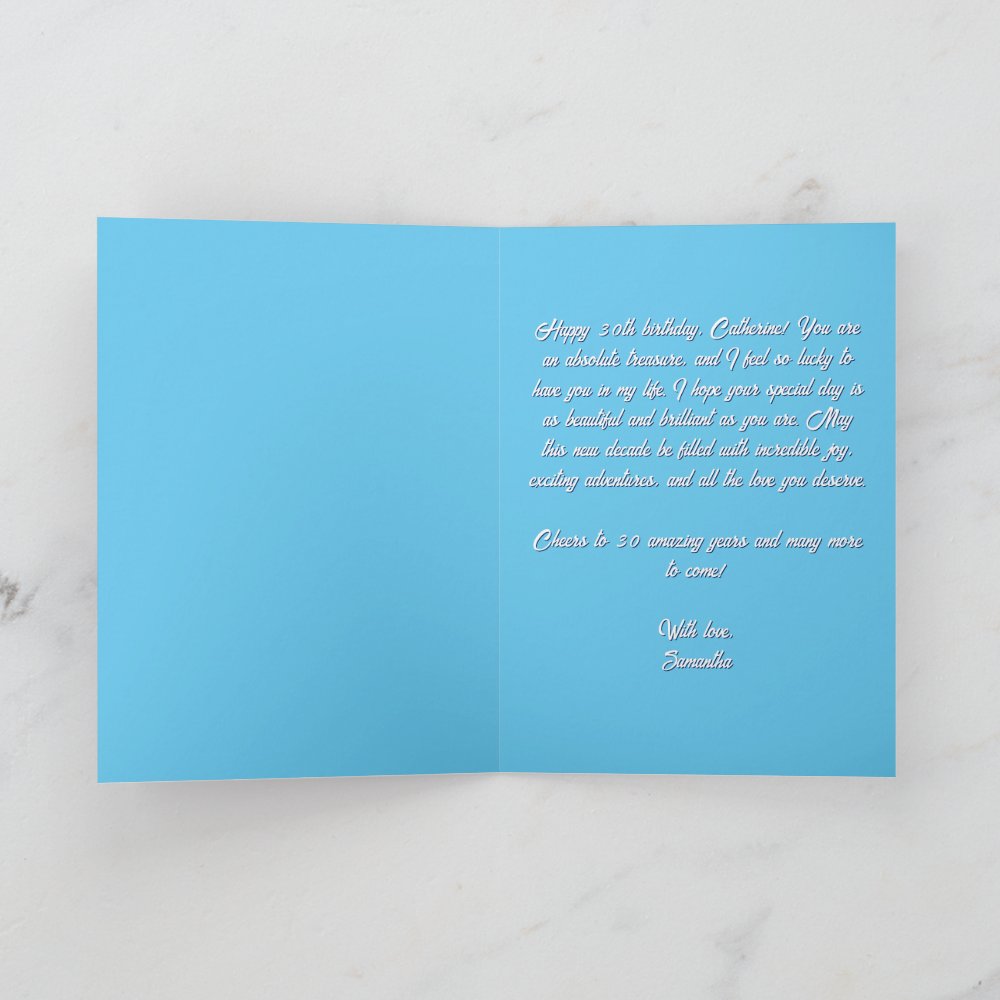 Happy 30th birthday, Catherine! You are
an absolute treasure, and I feel so lucky to
have you in my life. I hope your special day is
as beautiful and brilliant as you are. May
this new decade be filled with incredible joy,
exciting adventures, and all the love you deserve.
Cheers to 30 amazing years and many more
to come!
With love,
Samantha